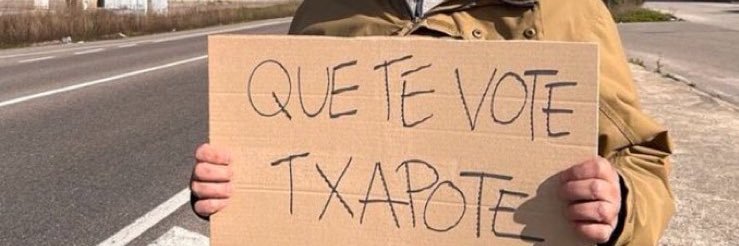 QUE TE VOTE
TXAPOTE